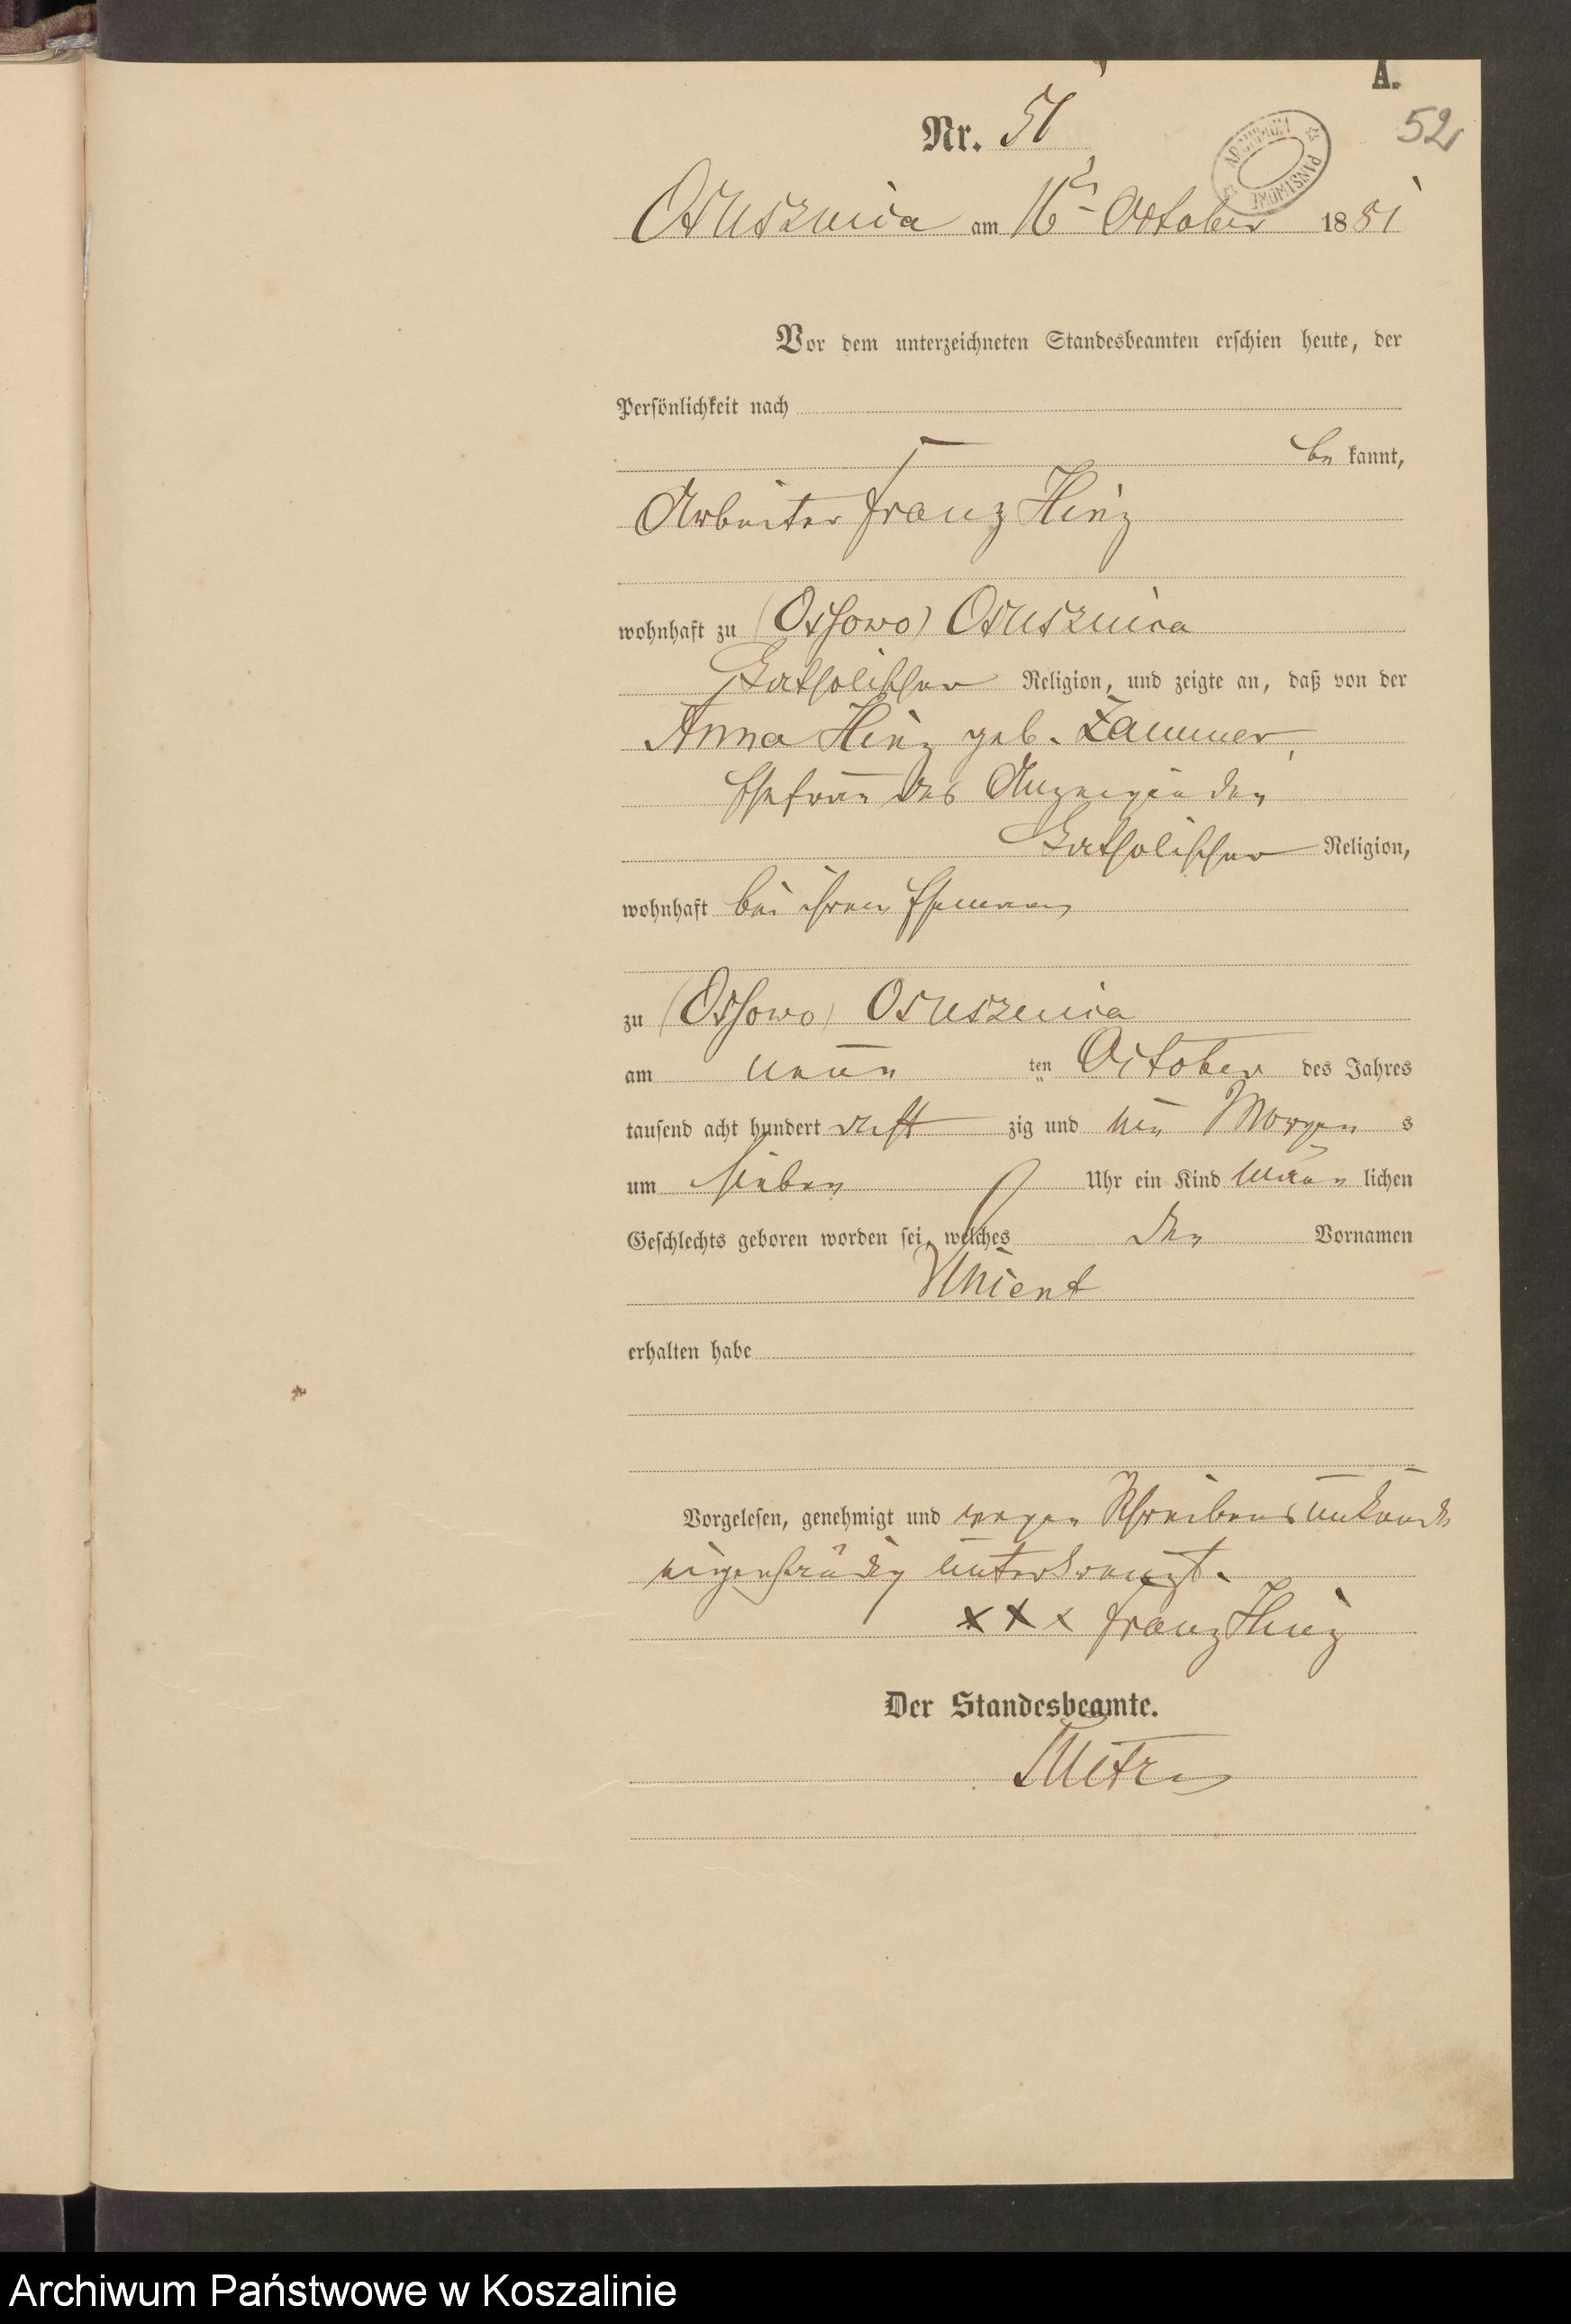 A.
Nr. 51
52
ARCHIWUM PAŃSTWOWE
Osusznica am 16t October 1881
Vor dem unterzeichneten Standesbeamten erschien heute, der
Persönlichkeit nach
be kannt,
Arbeiter Franz Hinz
wohnhaft zu (Ossowo) Osusznica
Katholischer Religion, und zeigte an, daß von der
Anna Hinz geb. Zammer,
Ehefrau des Anzeigenden
Katholischer Religion,
wohnhaft bei ihrem Ehemann
zu (Ossowo) Osusznica
am neun ten October des Jahres
tausend acht hundert acht zig und ein Morgen s
um sieben Uhr ein Kind männ lichen
Geschlechts geboren worden sei, welches den Vornamen
erhalten habe
Vorgelesen, genehmigt und wegen Schreibensunkunde
eigenhändig unterkreuzt.
xxx Franz Hinz
Der Standesbeamte.
Archiwum Państwowe w Koszalinie